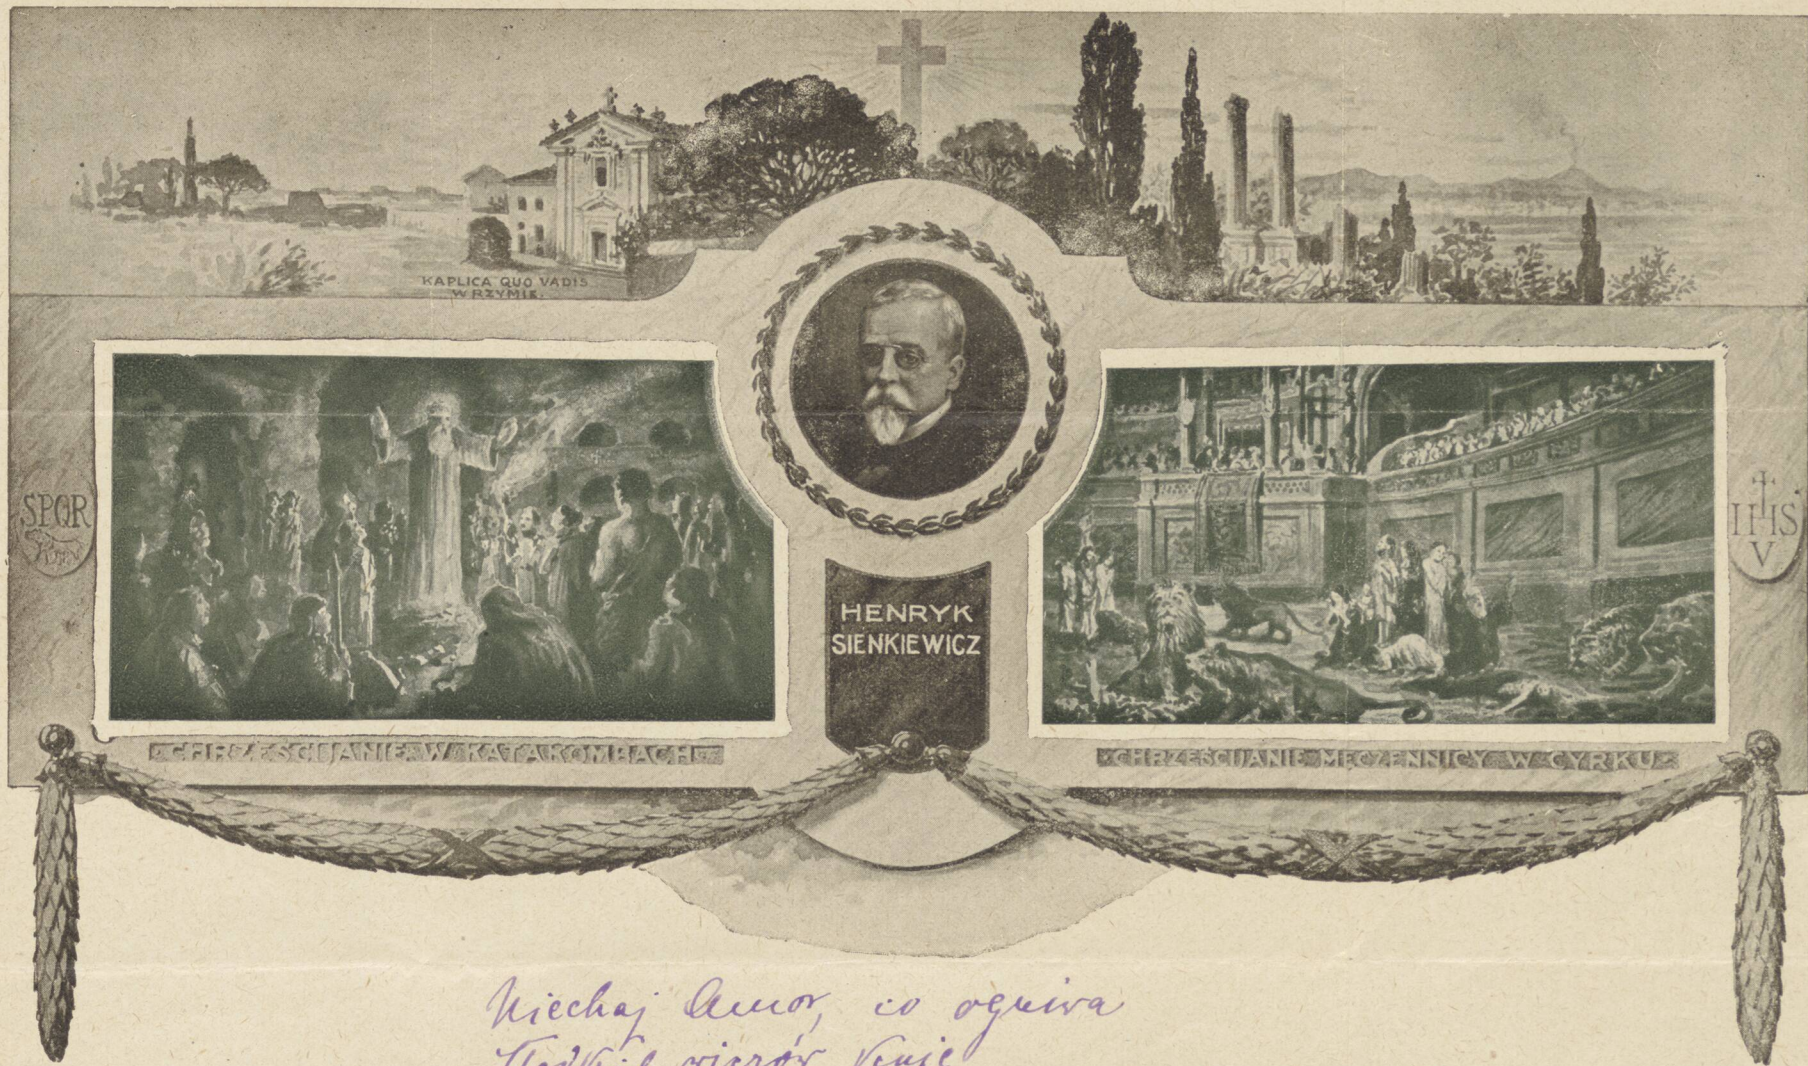 KAPLICA QUO VADIS
W RZYMIE.
SPQR
IHS
V
HENRYK
SIENKIEWICZ
CHRZEŚCIJANIE W KATAKOMBACH
CHRZEŚCIJANIE MĘCZENNICY W CYRKU
Niechaj Amor, co ogniwa